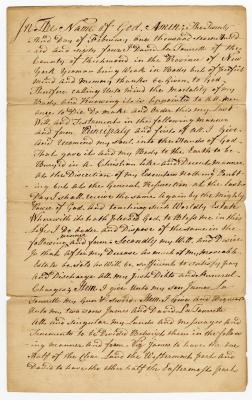 In The Name of God, Amen: The Twenty
and Day of February one thousand seven hund
red and eighty four I David La Tourette of the
County of Richmond in the Province of New
York Yeoman being Weak in Body but of Perfect
Mind and Memory thanks be given to God
Therefore calling unto mind the Mortality of my
Body and knowing it is Appointed to all men
once to Die Do make and this my Last
Will and Testament in the following manner
and form Principaly and first of all I Give
and recomend my Soul into the Hands of God
That gave it and my Body to the Earth to be
Buryed in a Christian Like and Decent Manner
at the Discretion of my Executors nothing Doubt
ing but at the General resurrection at the Last
Day I shall receive the same Again by the Mighty
Power of God and touching such Worldly Estate
Wherewith it hath pleased God to Bless me in this
Life I Do and Dispose of the same in the
manner
following and form Secondly my Will and Desire
Is that After my Decease so much of my moveable
Estate be sold as will be sufficient to satisfy pay
and Discharge all my Just Debts and Funeral
Charges Item I give unto my son James La
Tourette my Gun & Sword Item I Give and Bequeath
Unto my two sons James and David La Tourette
All and Singular my Lands and Messuages and
Tenements to be Divided Betwixt them in the follow
ing manner and form James to have the one
Half of the Clear Land the Westermost part and
David to have the other half the Eastermost part